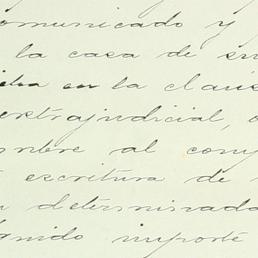 comunicado y
la casa de su
en la claus
extrajudicial, o
nbre al comp
escritura de
determinada
ido importe